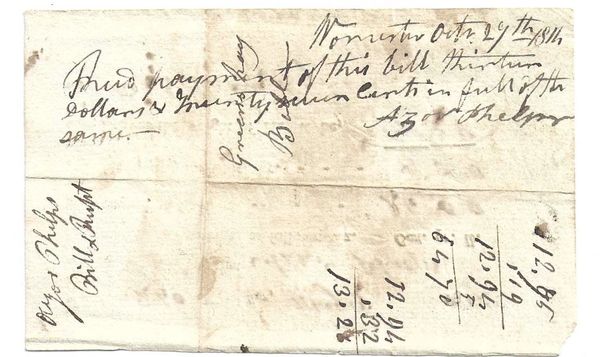 Worcester Octr 27th 1814
Recd payment of this bill thirteen
Dollars & Twenty seven Cents in full of the
same —
Azor Phelps
Bill
Azor Phelps
Bill &
.19
12.94
5
64 70
12.94
.32